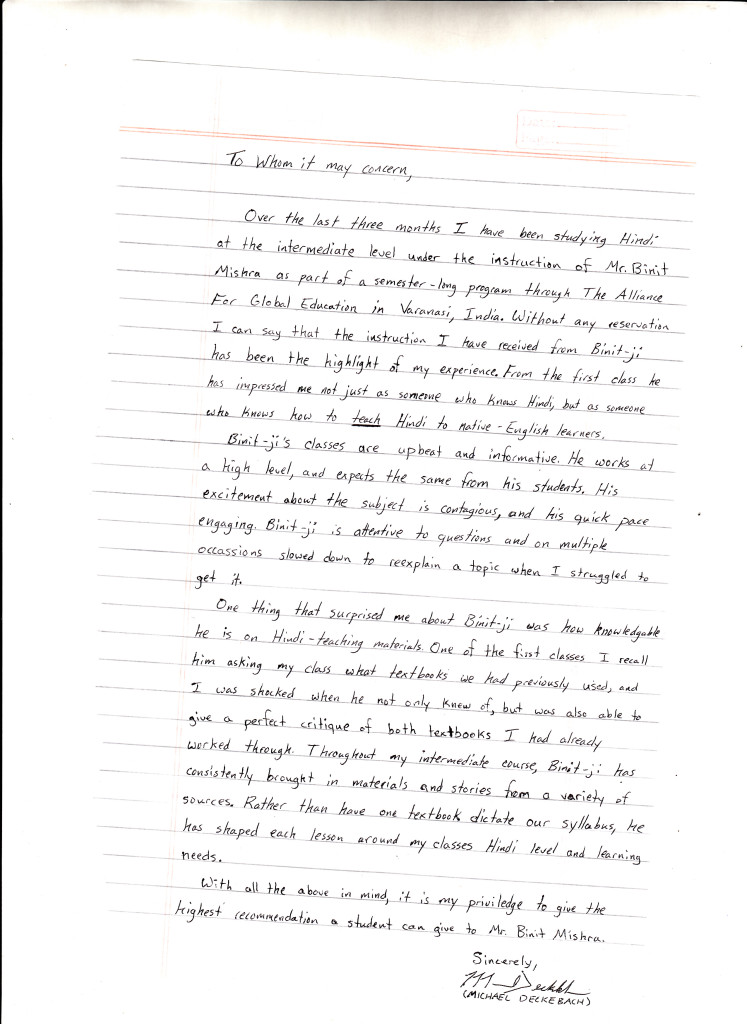 To Whom it may concern,
Over the last three months I have been studying Hindi
at the intermediate level under the instruction of Mr. Binit
Mishra as part of a semester-long program through The Alliance
For Global Education in Varanasi, India. Without any reservation
I can say that the instruction I have received from Binit-ji
has been the highlight of my experience. From the first class he
has impressed me not just as someone who knows Hindi, but as someone
who knows how to teach Hindi to native-English learners.
Binit-ji's classes are upbeat and informative. He works at
a high level, and expects the same from his students. His
excitement about the subject is contagious, and his quick pace
engaging. Binit-ji is attentive to questions and on multiple
occassions slowed down to reexplain a topic when I struggled to
get it.
One thing that surprised me about Binit-ji was how knowledgable
he is on Hindi-teaching materials. One of the first classes I recall
him asking my class what textbooks we had previously used, and
I was shocked when he not only knew of, but was also able to
give a perfect critique of both textbooks I had already
worked through. Throughout my intermediate course, Binit-ji has
consistently brought in materials and stories from a variety of
sources. Rather than have one textbook dictate our syllabus, he
has shaped each lesson around my classes Hindi level and learning
needs.
With all the above in mind, it is my priviledge to give the
highest recommendation a student can give to Mr. Binit Mishra.
Sincerely,
(MICHAEL DECKEBACH)